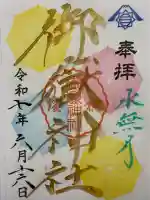 奉拝
水無月
御嶽神社
令和六年六月十三日